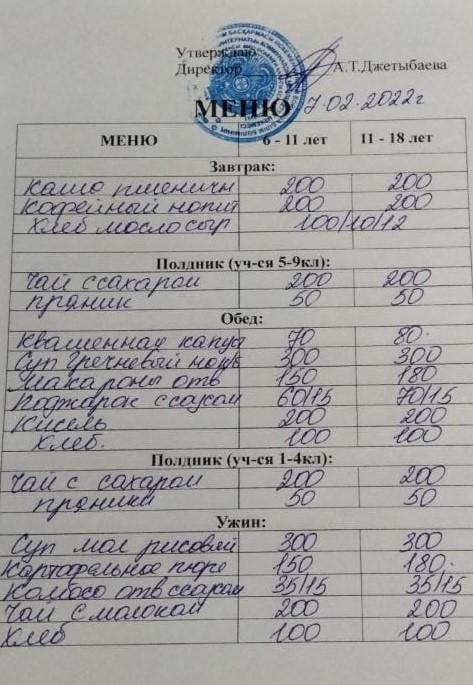 Утверждаю
Директор А.Т.Джетыбаева
МЕНЮ 7.02.2022г
МЕНЮ 6 - 11 лет 11 - 18 лет
Завтрак:
Каша пшеничн 200 200
Кофейный напит 200 200
Хлеб масло сыр 100/10/12
Полдник (уч-ся 5-9кл):
Чай с сахаром 200 200
пряник 50 50
Обед:
Квашенная капус 70 80.
Суп гречневый 300 300
Макароны отв 150 180
Поджарок с соусом 60/15 70/15
Кисель 200 200
Хлеб. 100 100
Полдник (уч-ся 1-4кл):
Чай с сахаром 200 200
пряники 50 50
Ужин:
Суп мол рисовый 300 300
Картофельное пюре 150 180.
Колбаса отв с соусом 35/15 35/15
Чай с молоком 200 200
Хлеб 100 100